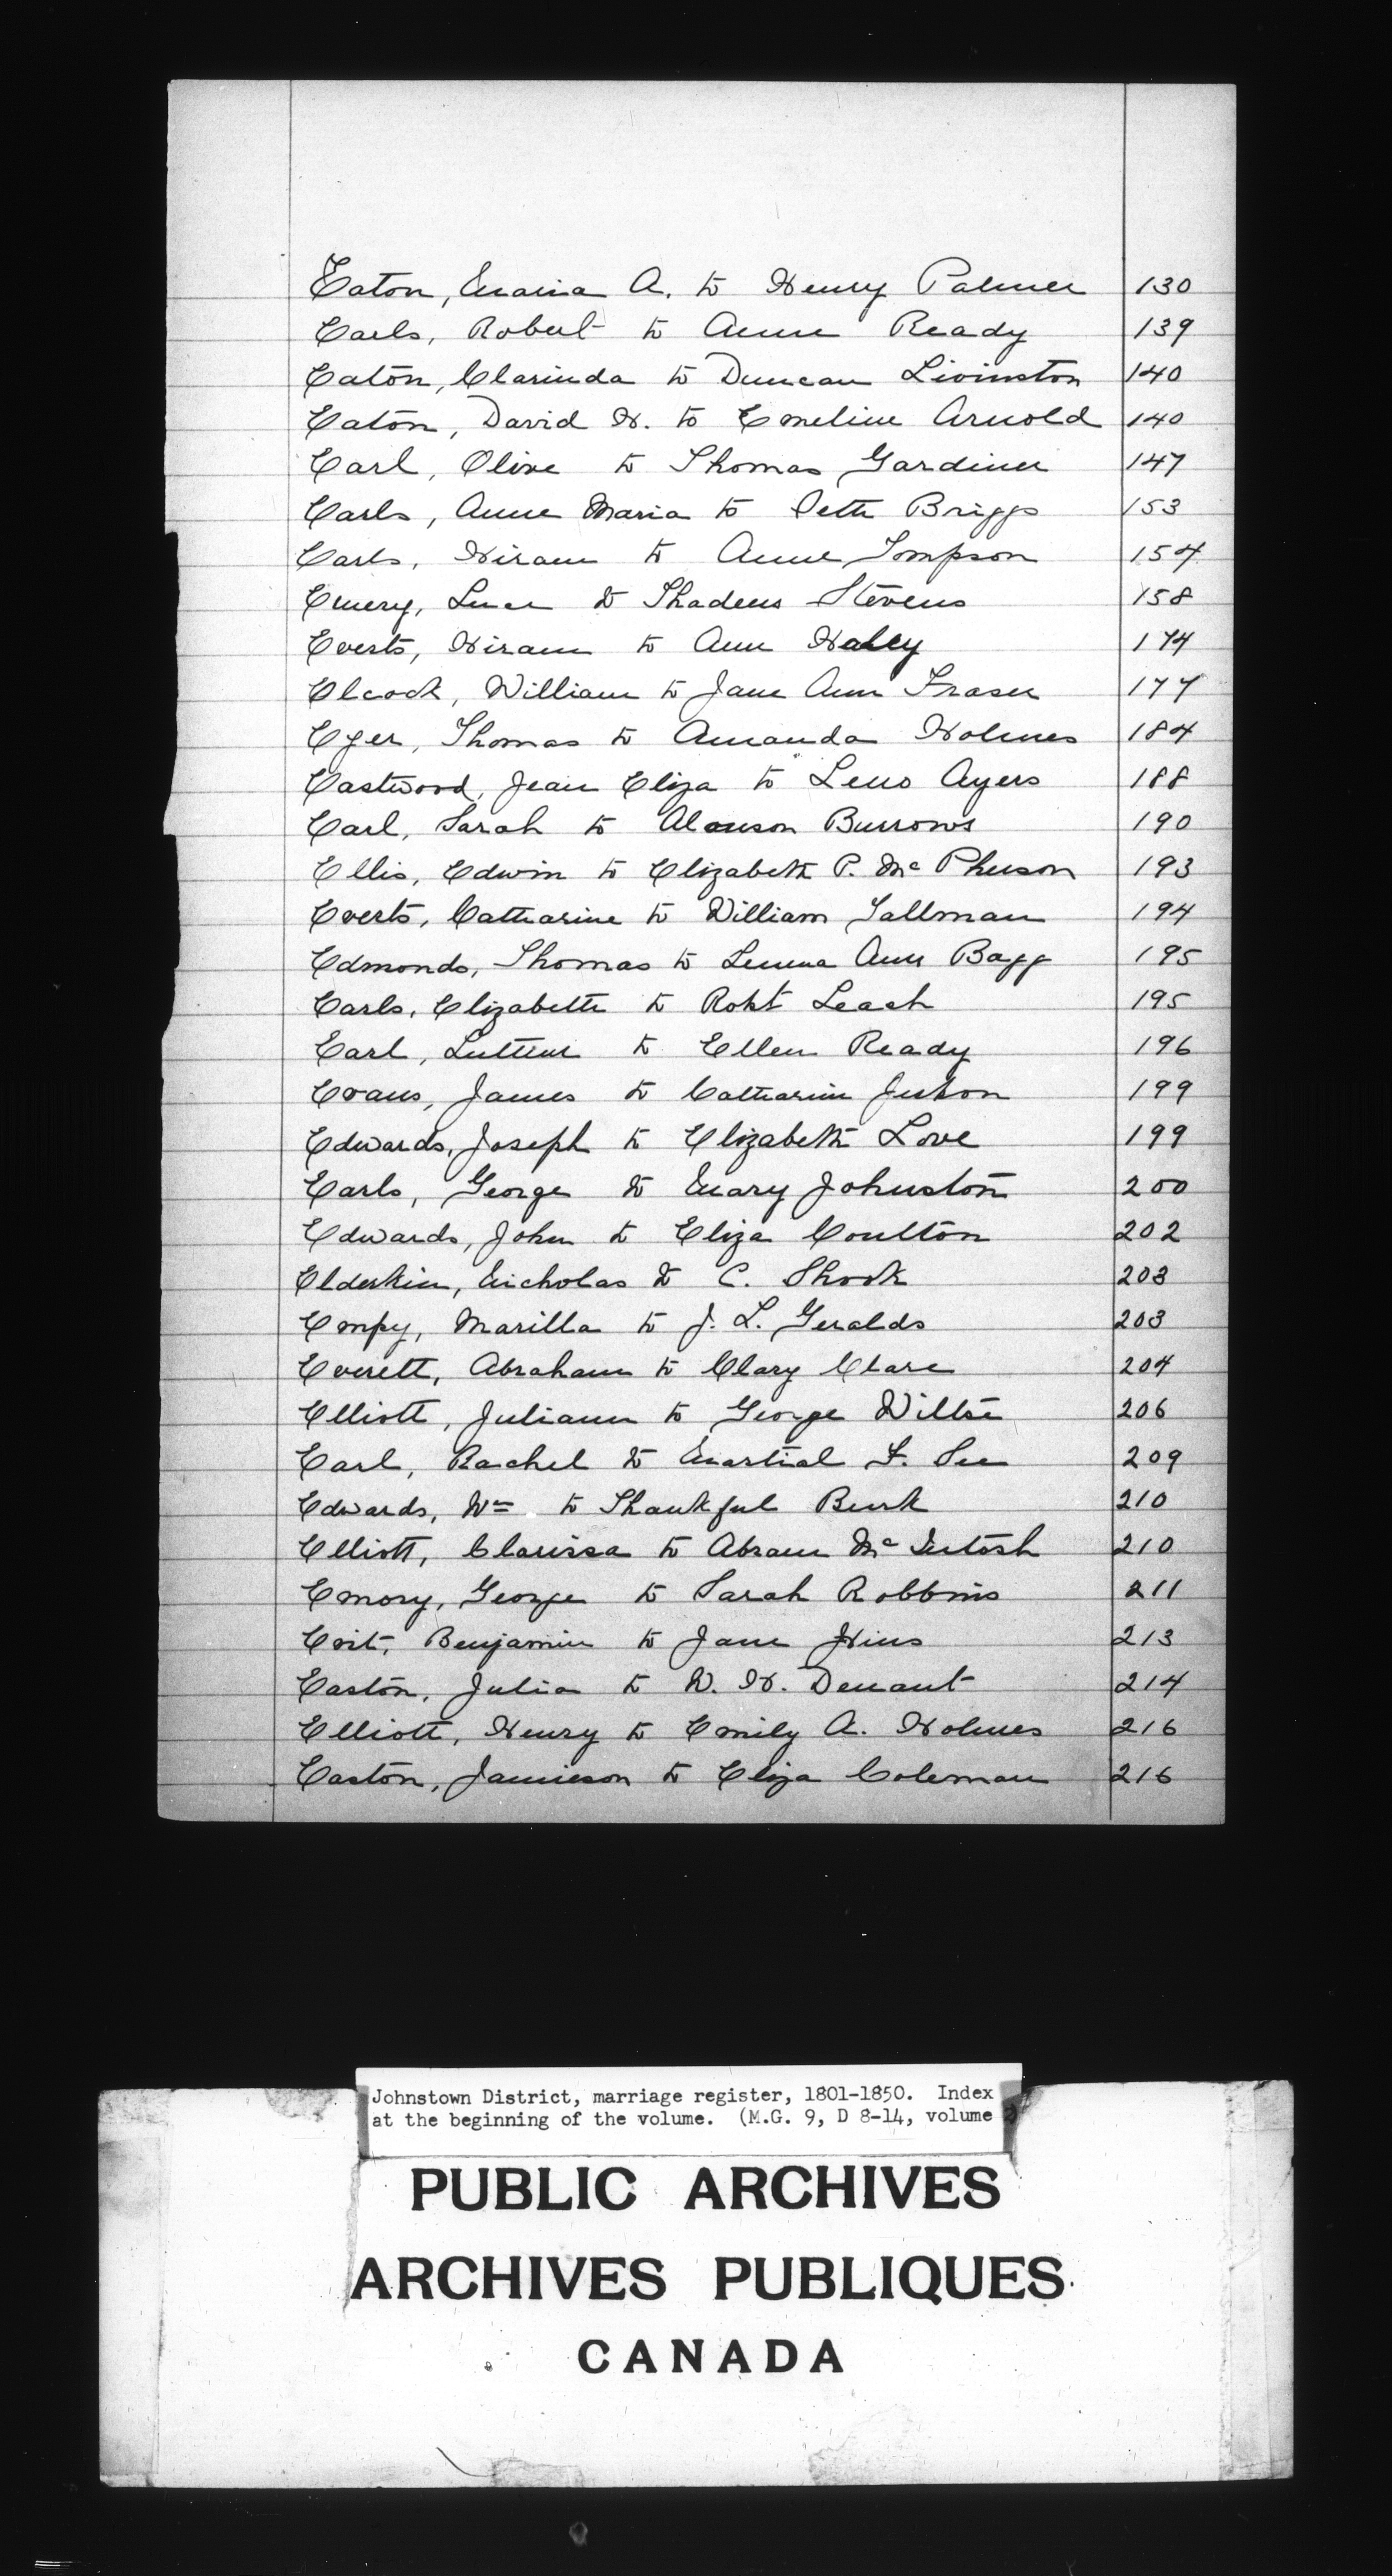 Eaton, Maria A. to Henry Palmer 130
Earls, Robert to Anne Ready 139
Eaton, Clarinda to Duncan Livinston 140
Eaton, David H. to Emeline Arnold 140
Earl, Olive to Thomas Gardiner 147
Earls, Anne Maria to Seth Briggs 153
Earls, Hiram to Anne Tompson 154
Emery, to Thadeus Stevens 158
Everts, Hiram to Ann Haley 174
Elcock, William to Jane Ann Fraser 177
Eyer, Thomas to Amanda Holmes 184
Eastwood, Jean Eliza to Ayers 188
Earl, Sarah to Alanson Burrows 190
Ellis, Edwin to Elizabeth P. McPherson 193
Everts, Catharine to William Tallman 194
Edmonds, Thomas to Ann Bagg 195
Earls, Elizabeth to Robt Leach 195
Earl, Luther to Ellen Ready 196
Evans, James to Catharine 199
Edwards, Joseph to Elizabeth Love 199
Earls, George to Mary Johnston 200
Edwards, John to Eliza Coulton 202
Elderkin, Nicholas to C. Shook 203
Empy, Marilla to J. L. Geralds 203
Everett, Abraham to Clary Clare 204
Elliott, Juliann to George Wiltse 206
Earl, Rachel to Martial F. See 209
Edwards, Wm to Thankful Burk 210
Elliott, Clarissa to Abram McIntosh 210
Emory, George to Sarah Robbins 211
Evit, Benjamin to Jane Hins 213
Easton, Julia to W. H. Denaut 214
Elliott, Henry to Emily A. Holmes 216
Easton, Jamieson to Eliza Coleman 216
Johnstown District, marriage register, 1801-1850. Index
at the beginning of the volume. (M.G. 9, D 8-14, volume
PUBLIC ARCHIVES
ARCHIVES PUBLIQUES
CANADA